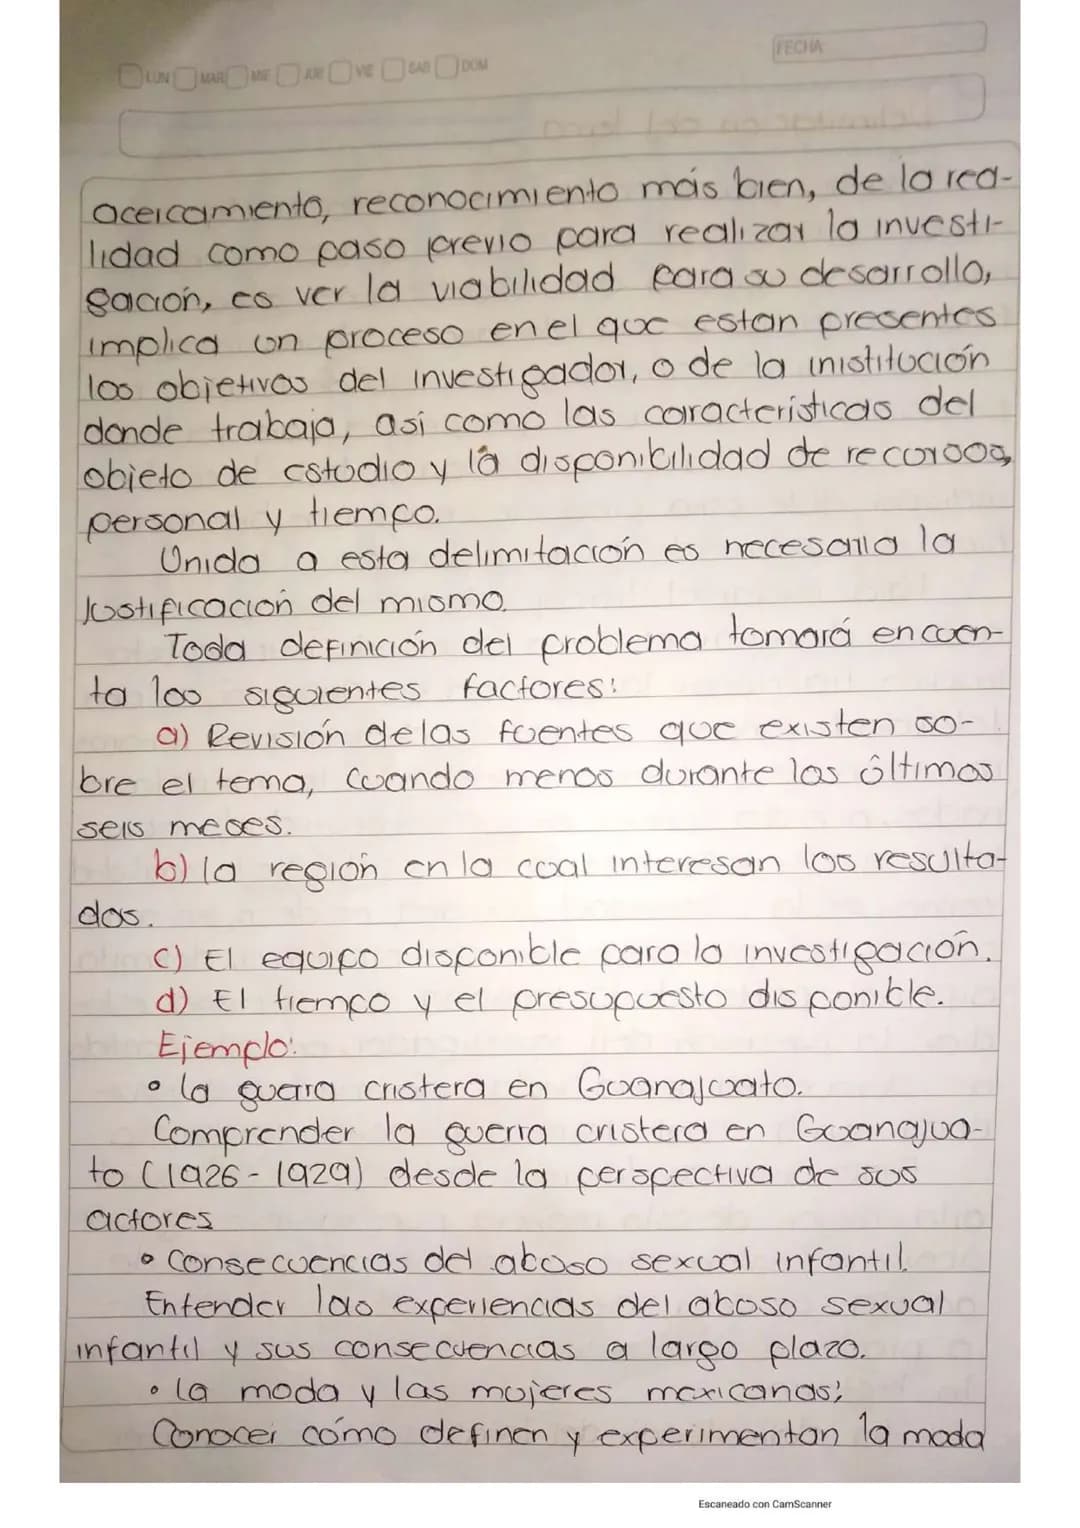 FECHA
LUN MAR MIE JUE VIE SAB DOM
acercamiento, reconocimiento más bien, de la rea-
lidad como paso previo para realizar la investi-
gación, es ver la viabilidad para su desarrollo,
implica un proceso en el que estan presentes
los objetivos del investigador, o de la inistitución
donde trabaja, así como las características del
objeto de estudio y la disponibilidad de recursos,
personal y tiempo.
Unida a esta delimitación es necesaria la
Justificación del mismo.
Toda definición del problema tomará en cuen-
ta los siguientes factores:
a) Revisión de las fuentes que existen so-
bre el tema, cuando menos durante los últimos
seis meses.
b) la región en la cual interesan los resulta-
dos.
c) El equipo disponible para la investigación.
d) El tiempo y el presupuesto disponible.
Ejemplo:
• la guerra cristera en Guanajuato.
Comprender la guerra cristera en Guanajua-
to (1926 - 1929) desde la perspectiva de sus
actores
• Consecuencias del abuso sexual infantil.
Entender las experiencias del abuso sexual
infantil y sus consecuencias a largo plazo.
• la moda y las mujeres mexicanas;
Conocer cómo definen y experimentan la moda
Escaneado con CamScanner